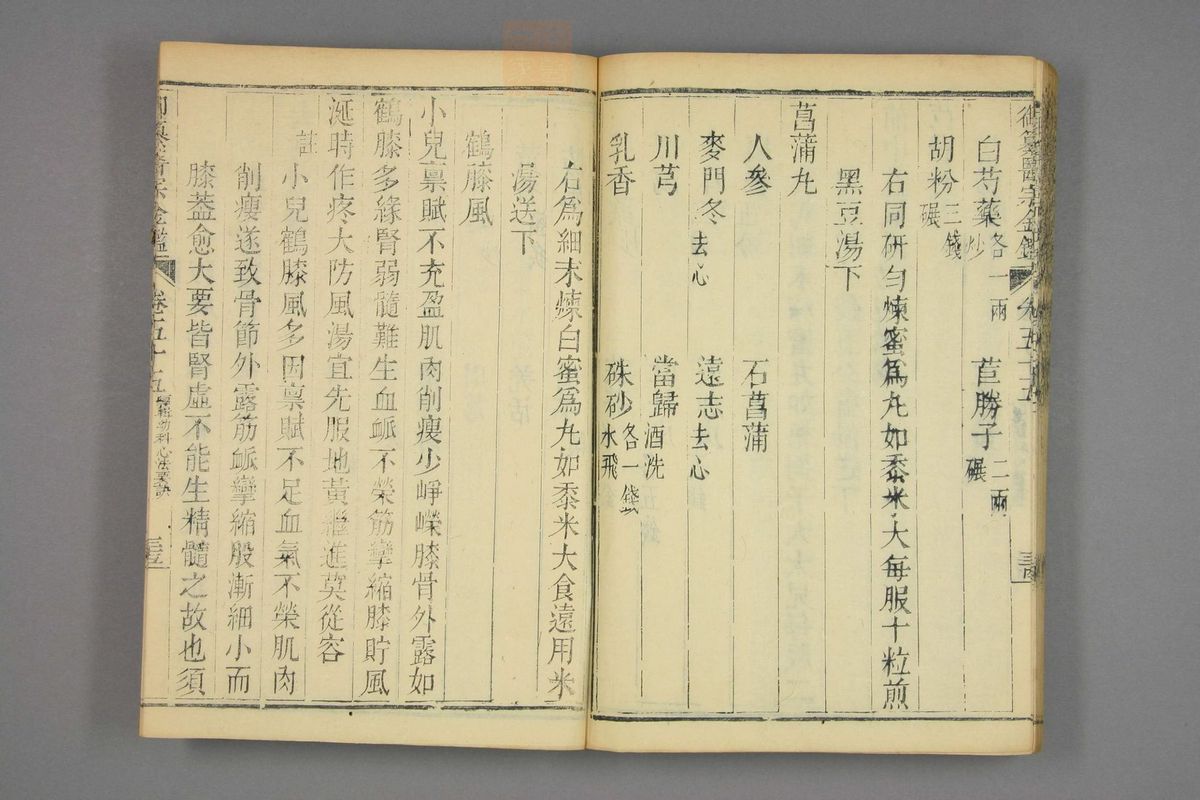 御纂醫宗金鑑 卷五十五
白芍藥各一兩炒 苣勝子二兩碾
胡粉三錢碾
右同研勻煉蜜爲丸如黍米大每服十粒煎
黑豆湯下
菖蒲丸
人參 石菖蒲
麥門冬去心 遠志去心
川芎 當歸酒洗
乳香 硃砂各一錢水飛
右爲細末煉白蜜爲丸如黍米大食遠用米
湯送下
鶴膝風
小兒禀賦不充盈肌肉削瘦少崢嶸膝骨外露如
鶴膝多緣腎弱髓難生血脈不榮筋攣縮膝貯風
涎時作疼大防風湯宜先服地黃繼進莫從容
註 小兒鶴膝風多因禀賦不足血氣不榮肌肉
削瘦遂致骨節外露筋脈攣縮股漸細小而
膝蓋愈大要皆腎虛不能生精髓之故也須
卷五十五 幼科心法要訣